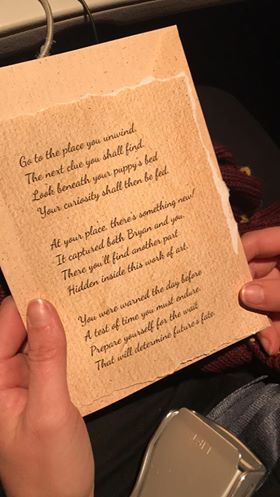 Go to the place you unwind,
The next clue you shall find.
Look beneath your puppy's bed
Your curiosity shall then be fed.
At your place, there's something new!
It captured both Bryan and you.
There you'll find another part
Hidden inside this work of art.
You were warned the day before
A test of time you must endure.
Prepare yourself for the wait
That will determine future's fate.